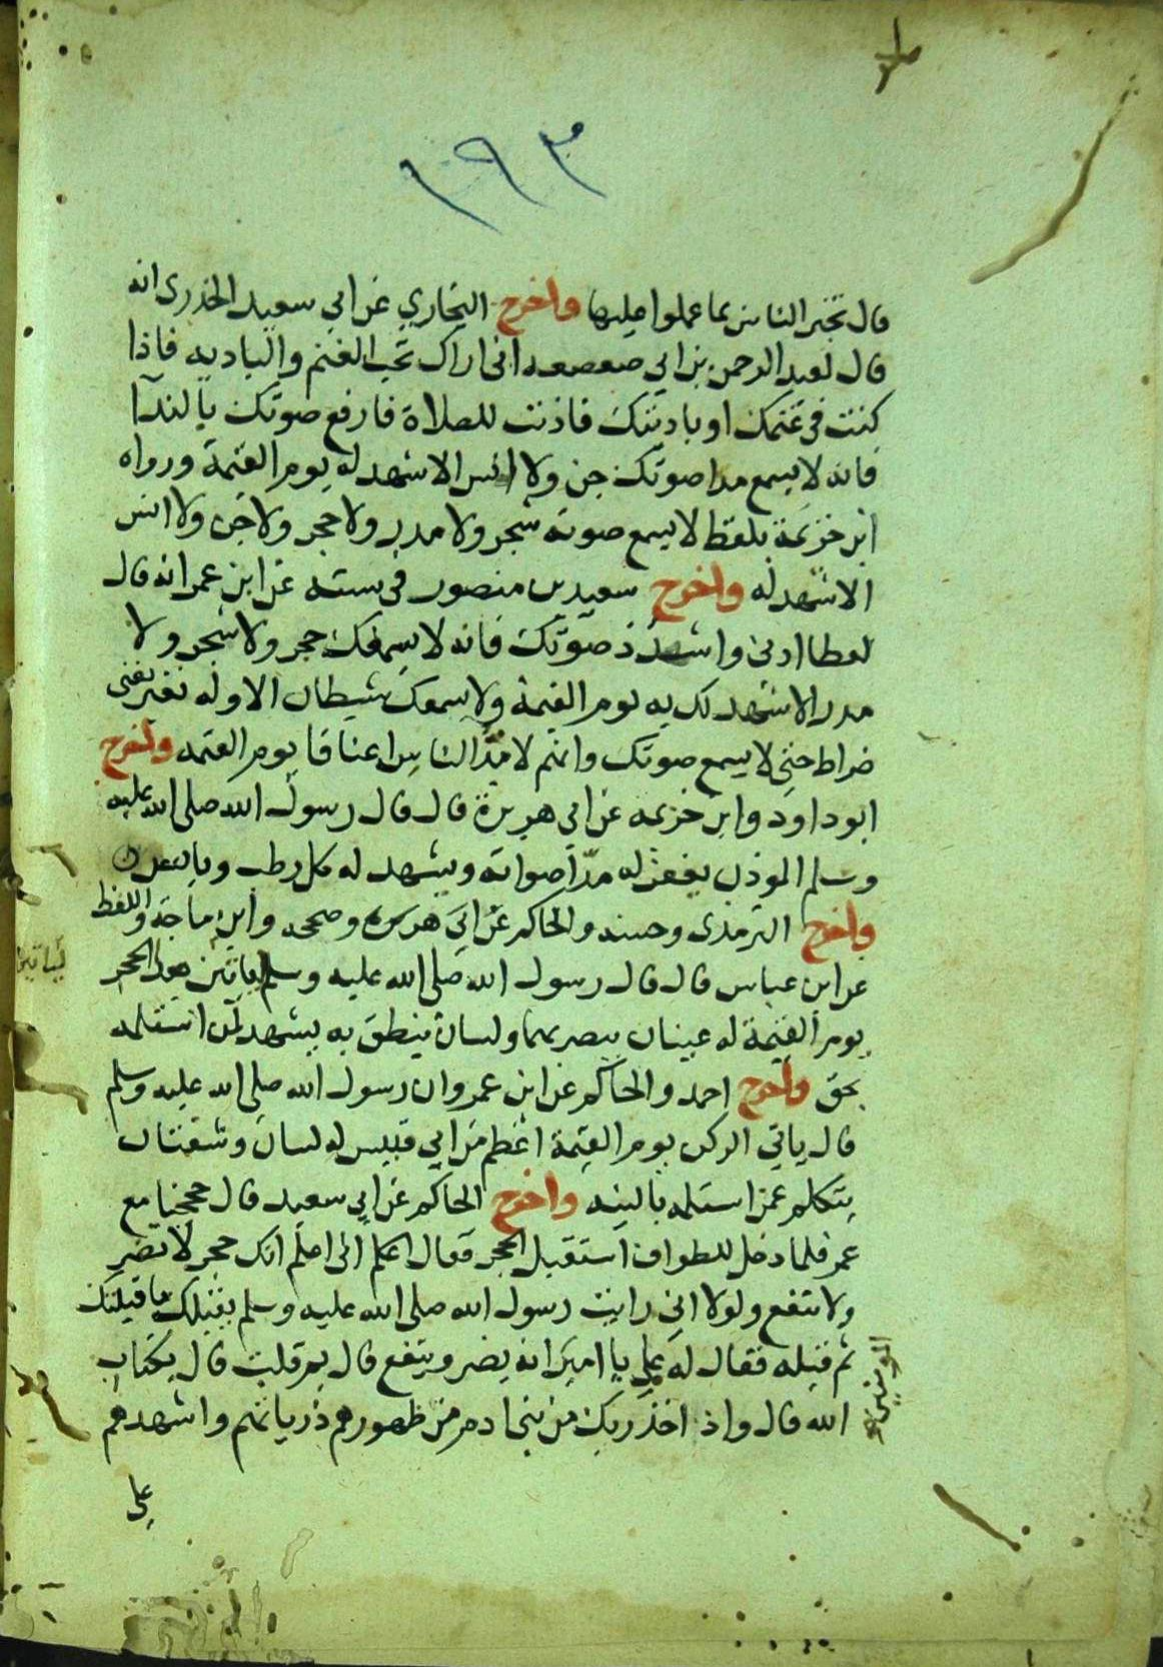 ١٩٣
قال تخبر الناس بما عملوا عليها واخرج البخاري عن ابي سعيد الخدرى انه
قال لعبد الرحمن بن ابي صعصعه انى اراك تحب الغنم والباديه فاذا
كنت فى غنمك او باديتك فاذنت للصلاة فارفع صوتك بالندآ
فانه لا يسمع مدا صوتك جن ولا انس الا شهد له يوم القيمة ورواه
ابن خزيمة بلفظ لا يسمع صوته شجر ولا مدر ولا حجر ولا جن ولا انس
الا شهد له واخرج سعيد بن منصور فى سننه عن ابن عمر انه قال
صوتك فانه لا يسمعك حجر ولا شجر ولا
مدر الا شهد لك به يوم القيمة ولا يسمعك شيطان الا وله
ضراط حتى لا يسمع صوتك وانهم لامدّ الناس اعناقا يوم القيمه واخرج
ابو داود وابن خزيمه عن ابي هريرة قال قال رسول الله صلى الله عليه
وسلم الموذن يغفر له مدّ اصواته ويشهد له كل رطب ويابس
واخرج الترمذى وحسنه والحاكم عن ابي هريره وصححه وابن ماجة واللفظ
عن ابن عباس قال قال رسول الله صلى الله عليه وسلم ليأتين هذا الحجر
يوم القيمة له عينان يبصر بهما ولسان ينطق به يشهد لمن استلمه
بحق واخرج احمد والحاكم عن ابن عمرو ان رسول الله صلى الله عليه وسلم
قال ياتي الركن يوم القيمة اعظم من ابي قبيس له لسان وشفتان
يتكلم عمن استلمه بالنيه واخرج الحاكم عن ابي سعيد قال حججنا مع
عمر فلما دخل للطواف استقبل الحجر فقال اعلم انى اعلم انك حجر لا تضر
ولا تنفع ولولا اني رايت رسول الله صلى الله عليه وسلم يقبلك ما قبلتك
ثم قبله فقال له علي يا امير انه يضر وينفع قال بم قلت قال بكتاب
المومنين
الله قال واذ اخذ ربك من بنى ادم من ظهورهم ذرياتهم واشهدهم
على